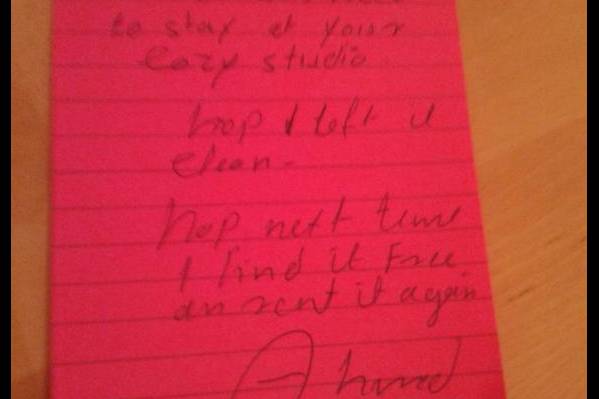 to stay at your
cozy studio
hop I left it
clean.
hop next time
I find it Free
an rent it again
Ahmed